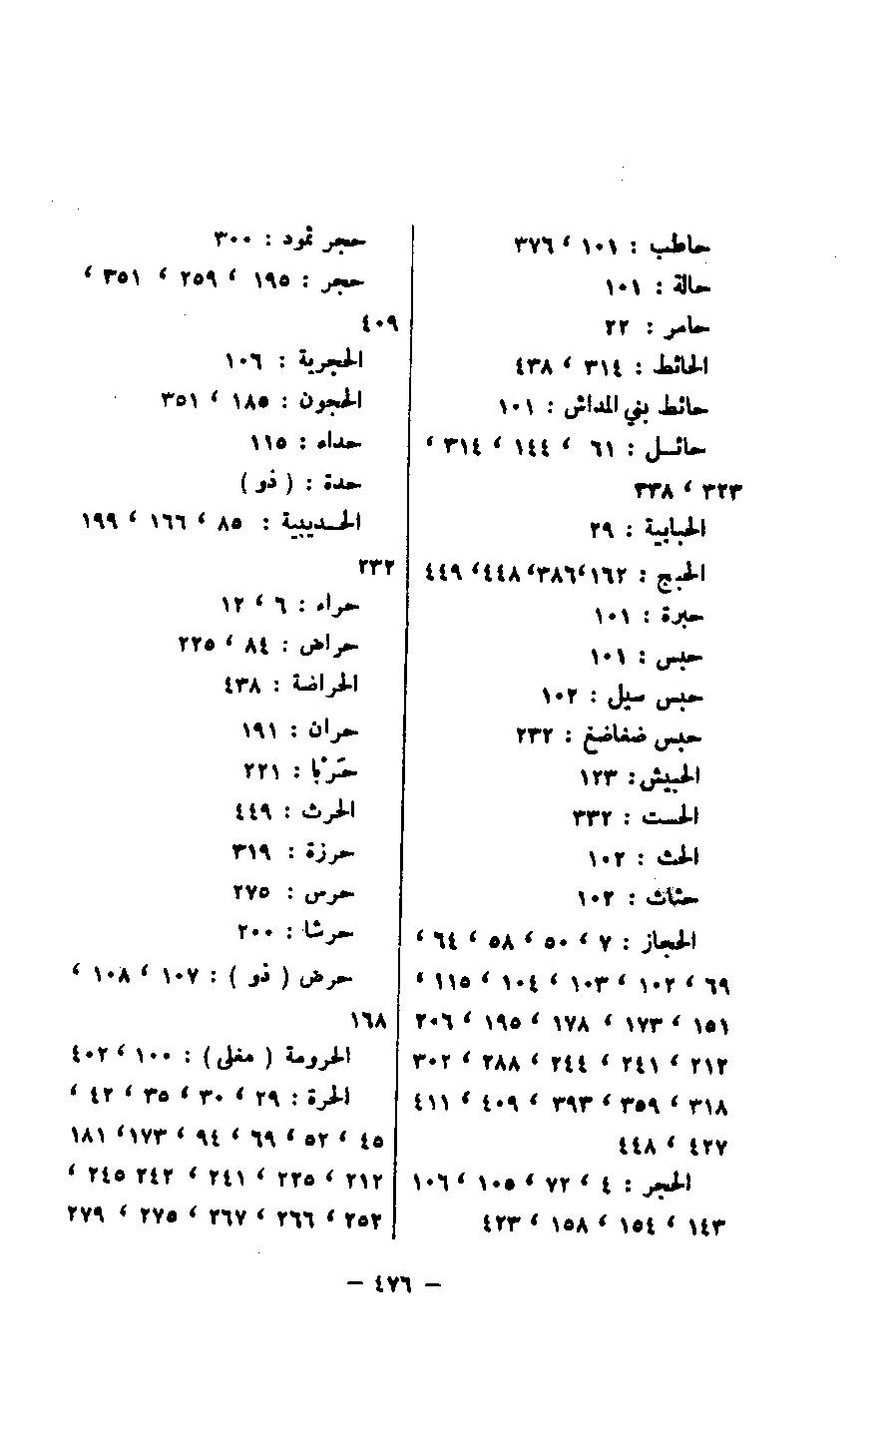 حاطب : ١٠١ ، ٣٧٦
حالة : ١٠١
حامر : ٢٢
الحائط : ٣١٤ ، ٤٣٨
حائط بني المداش : ١٠١
حائــل : ٦١ ، ١٤٤ ، ٣١٤ ،
٣٢٣ ، ٣٣٨
الحبابية : ٢٩
الحبج : ١٦٢،٣٨٦،٤٤٨، ٤٤٩
حبرة : ١٠١
حبس : ١٠١
حبس سيل : ١٠٢
حبس ضفاضغ : ٢٣٢
الحبيش: ١٢٣
الحست : ٣٣٢
الحث : ١٠٢
حثاث : ١٠٢
الحجاز : ٧ ، ٥٠ ، ٥٨ ، ٦٤ ،
٦٩ ، ١٠٢ ، ١٠٣ ، ١٠٤ ، ١١٥ ،
١٥١ ، ١٧٣ ، ١٧٨ ، ١٩٥ ، ٢٠٦
٢١٢ ، ٢٤١ ، ٢٤٤ ، ٢٨٨ ، ٣٠٢
٣١٨ ، ٣٥٩ ، ٣٩٣ ، ٤٠٩ ، ٤١١
٤٢٧ ، ٤٤٨
الحجر : ٤ ، ٧٢ ، ١٠٥ ، ١٠٦
١٤٣ ، ١٥٤ ، ١٥٨ ، ٤٢٣
حجر ثمود : ٣٠٠
حجر : ١٩٥ ، ٢٥٩ ، ٣٥١ ،
٤٠٩
الحجرية : ١٠٦
الحجون : ١٨٥ ، ٣٥١
حداء : ١١٥
حدة : ( ذو )
الحــديبية : ٨٥ ، ١٦٦ ، ١٩٩
٢٣٢
حراء : ٦ ، ١٢
حراض : ٨٤ ، ٢٢٥
الحراضة : ٤٣٨
حران : ١٩١
حَرْبا : ٢٢١
الحرث : ٤٤٩
حرزة : ٣١٩
حرس : ٢٧٥
حرشا : ٢٠٠
حرض ( ذو ) : ١٠٧ ، ١٠٨ ،
١٦٨
الحرومة ( مغلى) : ١٠٠ ، ٤٠٢
الحرة : ٢٩ ، ٣٠ ، ٣٥ ، ٤٢ ،
٤٥ ، ٥٢ ، ٦٩ ، ٩٤ ، ١٧٣، ١٨١
٢١٢ ، ٢٢٥ ، ٢٤١ ، ٢٤٢ ٢٤٥ ،
٢٥٢ ، ٢٦٦ ، ٢٦٧ ، ٢٧٥ ، ٢٧٩
– ٤٧٦ –